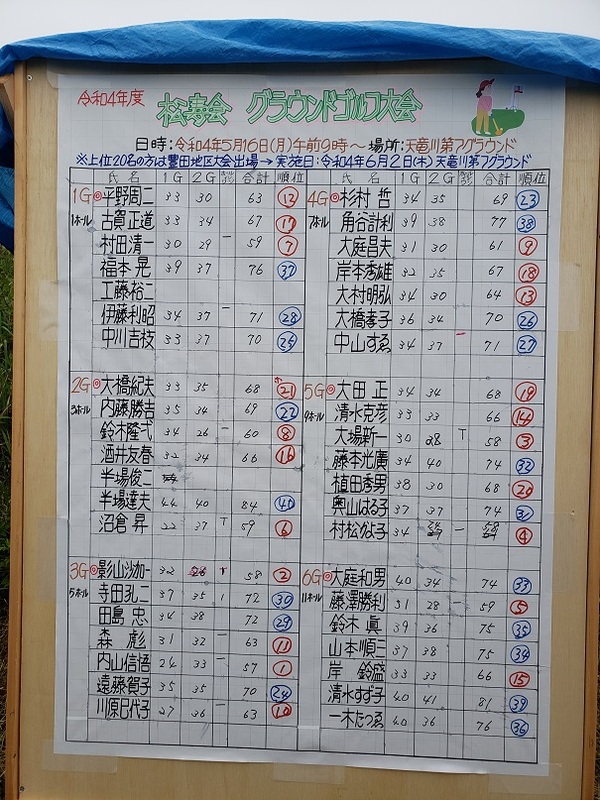 令和4年度 松寿会 グラウンドゴルフ大会
日時:令和4年5月16日(月)午前9時～場所:天竜川第7グラウンド
※上位20名の方は豊田地区大会出場→実施日:令和4年6月2日(木)天竜川第7グラウンド
氏名 1G 2G 合計 順位 氏名 1G 2G 合計 順位
1G ◎平野周二 33 30 63 12
1ホール 古賀正道 33 34 67 17
村田清一 30 29 一 59 7
福本晃 39 37 76 37
工藤裕二
伊藤利昭 34 37 一 71 28
中川吉枝 33 37 70 25
2G ◎大橋紀夫 33 35 68 21
3ホール 内藤勝吉 35 34 69 22
鈴木隆弌 34 26 一 60 8
酒井友春 32 34 66 16
半場俊二
半場達夫 44 40 84 40
沼倉昇 22 37 T 59 6
3G ◎影山沙加一 32 26 T 58 2
5ホール 寺田孔二 37 35 72 30
田島忠 34 38 72 29
森彪 31 32 一 63 11
内山信悟 24 33 一 57 1
遠藤賀子 35 35 70 24
川原巳代子 27 36 一 63 10
4G ◎杉村哲 34 35 69 23
7ホール 角谷計利 39 38 77 38
大庭昌夫 31 30 61 9
岸本秀雄 32 35 67 18
大村明弘 34 30 64 13
大橋孝子 36 34 70 26
中山すゑ 34 37 一 71 27
5G ◎大田正 34 34 68 19
9ホール 清水克彦 33 33 66 14
大場新一 30 28 T 58 3
藤本光廣 34 40 74 32
植田秀男 38 30 68 20
奥山はる子 37 37 74 31
村松かな子 34 一 58 4
6G ◎大庭和男 40 34 74 33
11ホール 藤澤勝利 31 28 一 59 5
鈴木眞 39 36 75 35
山本順三 37 38 75 34
岸鈴盛 33 33 66 15
清水すず子 40 41 81 39
一木たつゑ 40 36 76 36